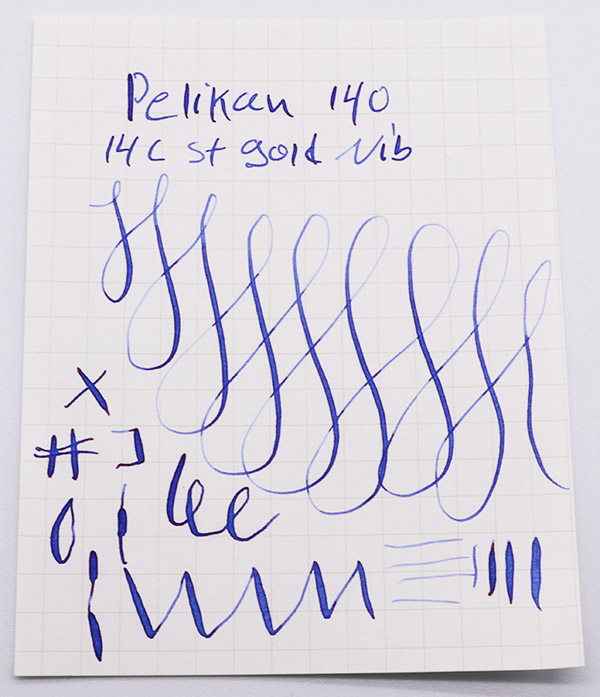 Pelikan 140
14C St gold Nib
X
#